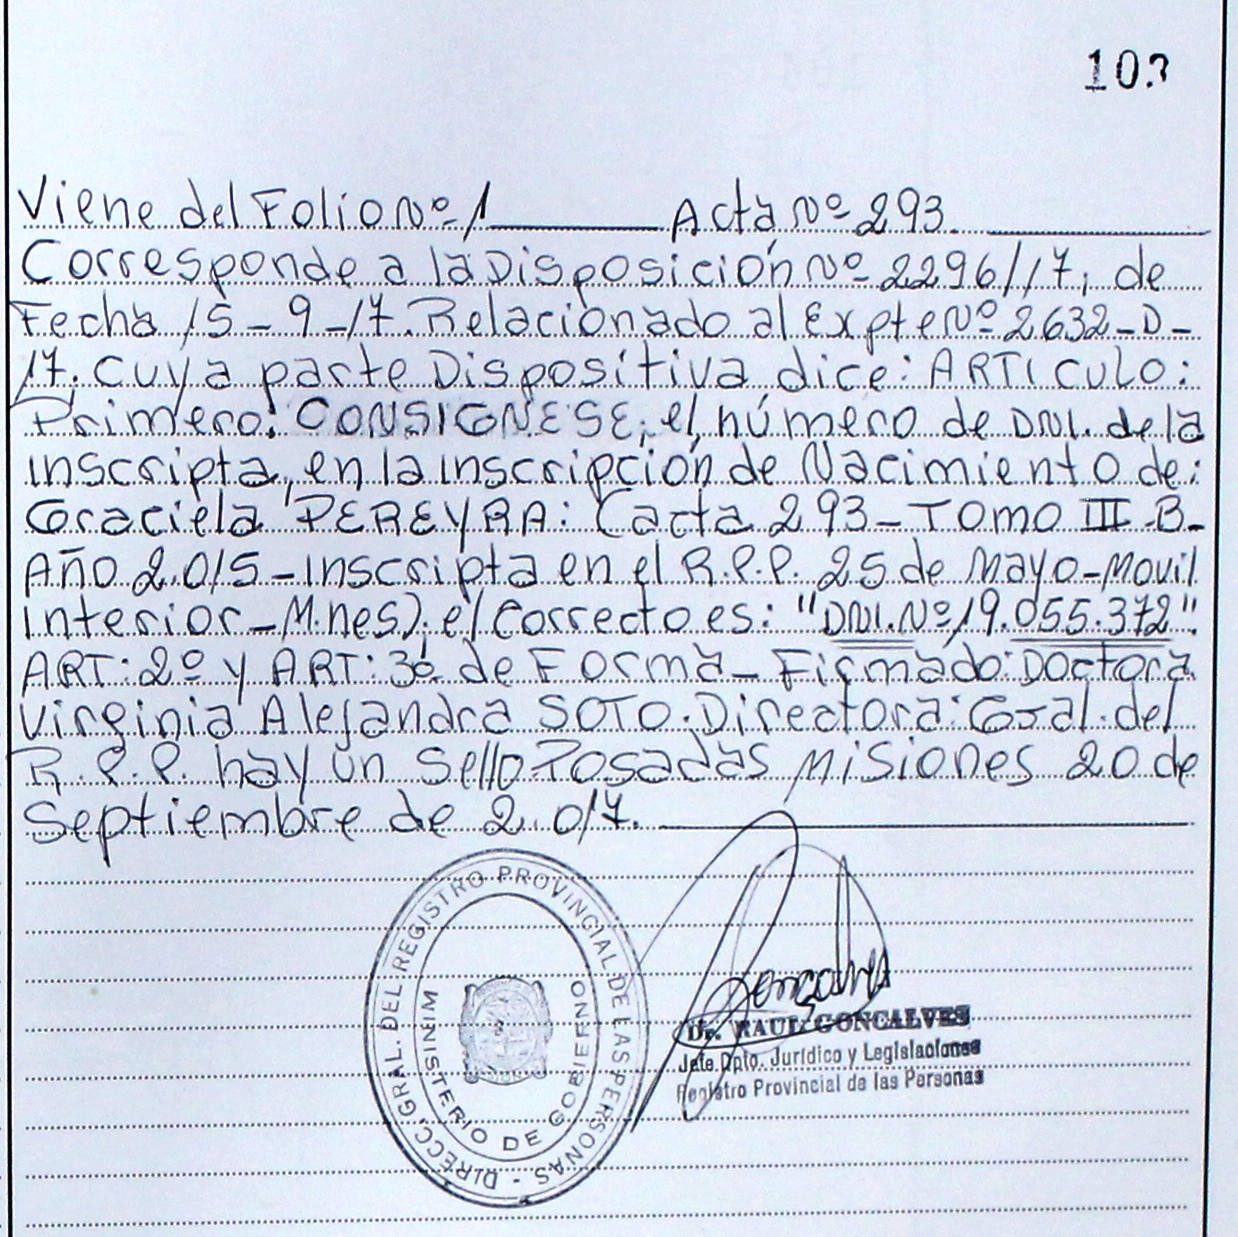 103
Viene del Folio Nº 1 Acta Nº 293.
Corresponde a la Disposición Nº 2296/17, de
Fecha 15-9-17. Relacionado al Expte Nº 2632-D-
17. Cuya parte Dispositiva dice: ARTICULO:
Primero: CONSIGNESE, el número de DNI. de la
inscripta, en la inscripción de Nacimiento de:
Graciela PEREYRA: (acta 293-TOMO III-B-
Año 2.015-inscripta en el R.P.P. 25 de Mayo-Movil
Interior-M.nes); el Correcto es: "DNI. Nº 19.055.372"
ART: 2º y ART: 3º de Forma- Firmado: Doctora
Virginia Alejandra SOTO. Directora Gral. del
R.P.P. hay un Sello Posadas Misiones 20 de
Septiembre de 2.017.
DIRECC. GRAL. DEL REGISTRO PROVINCIAL DE LAS PERSONAS -
MINISTERIO DE GOBIERNO
Dr. RAUL GONCALVES
Jefe Dpto. Jurídico y Legislaciones
Registro Provincial de las Personas